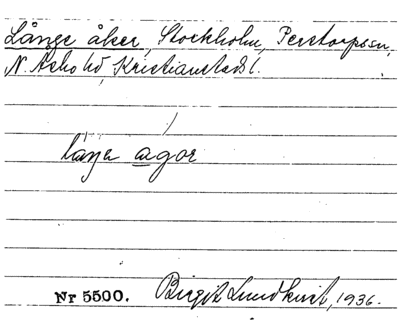 Långe åker, Stockholm, Perstorpssn,
N. Åsbo hd, Kristianstads l.
låŋa agor
Nr 5500. Birgit Lundkvist, 1936.